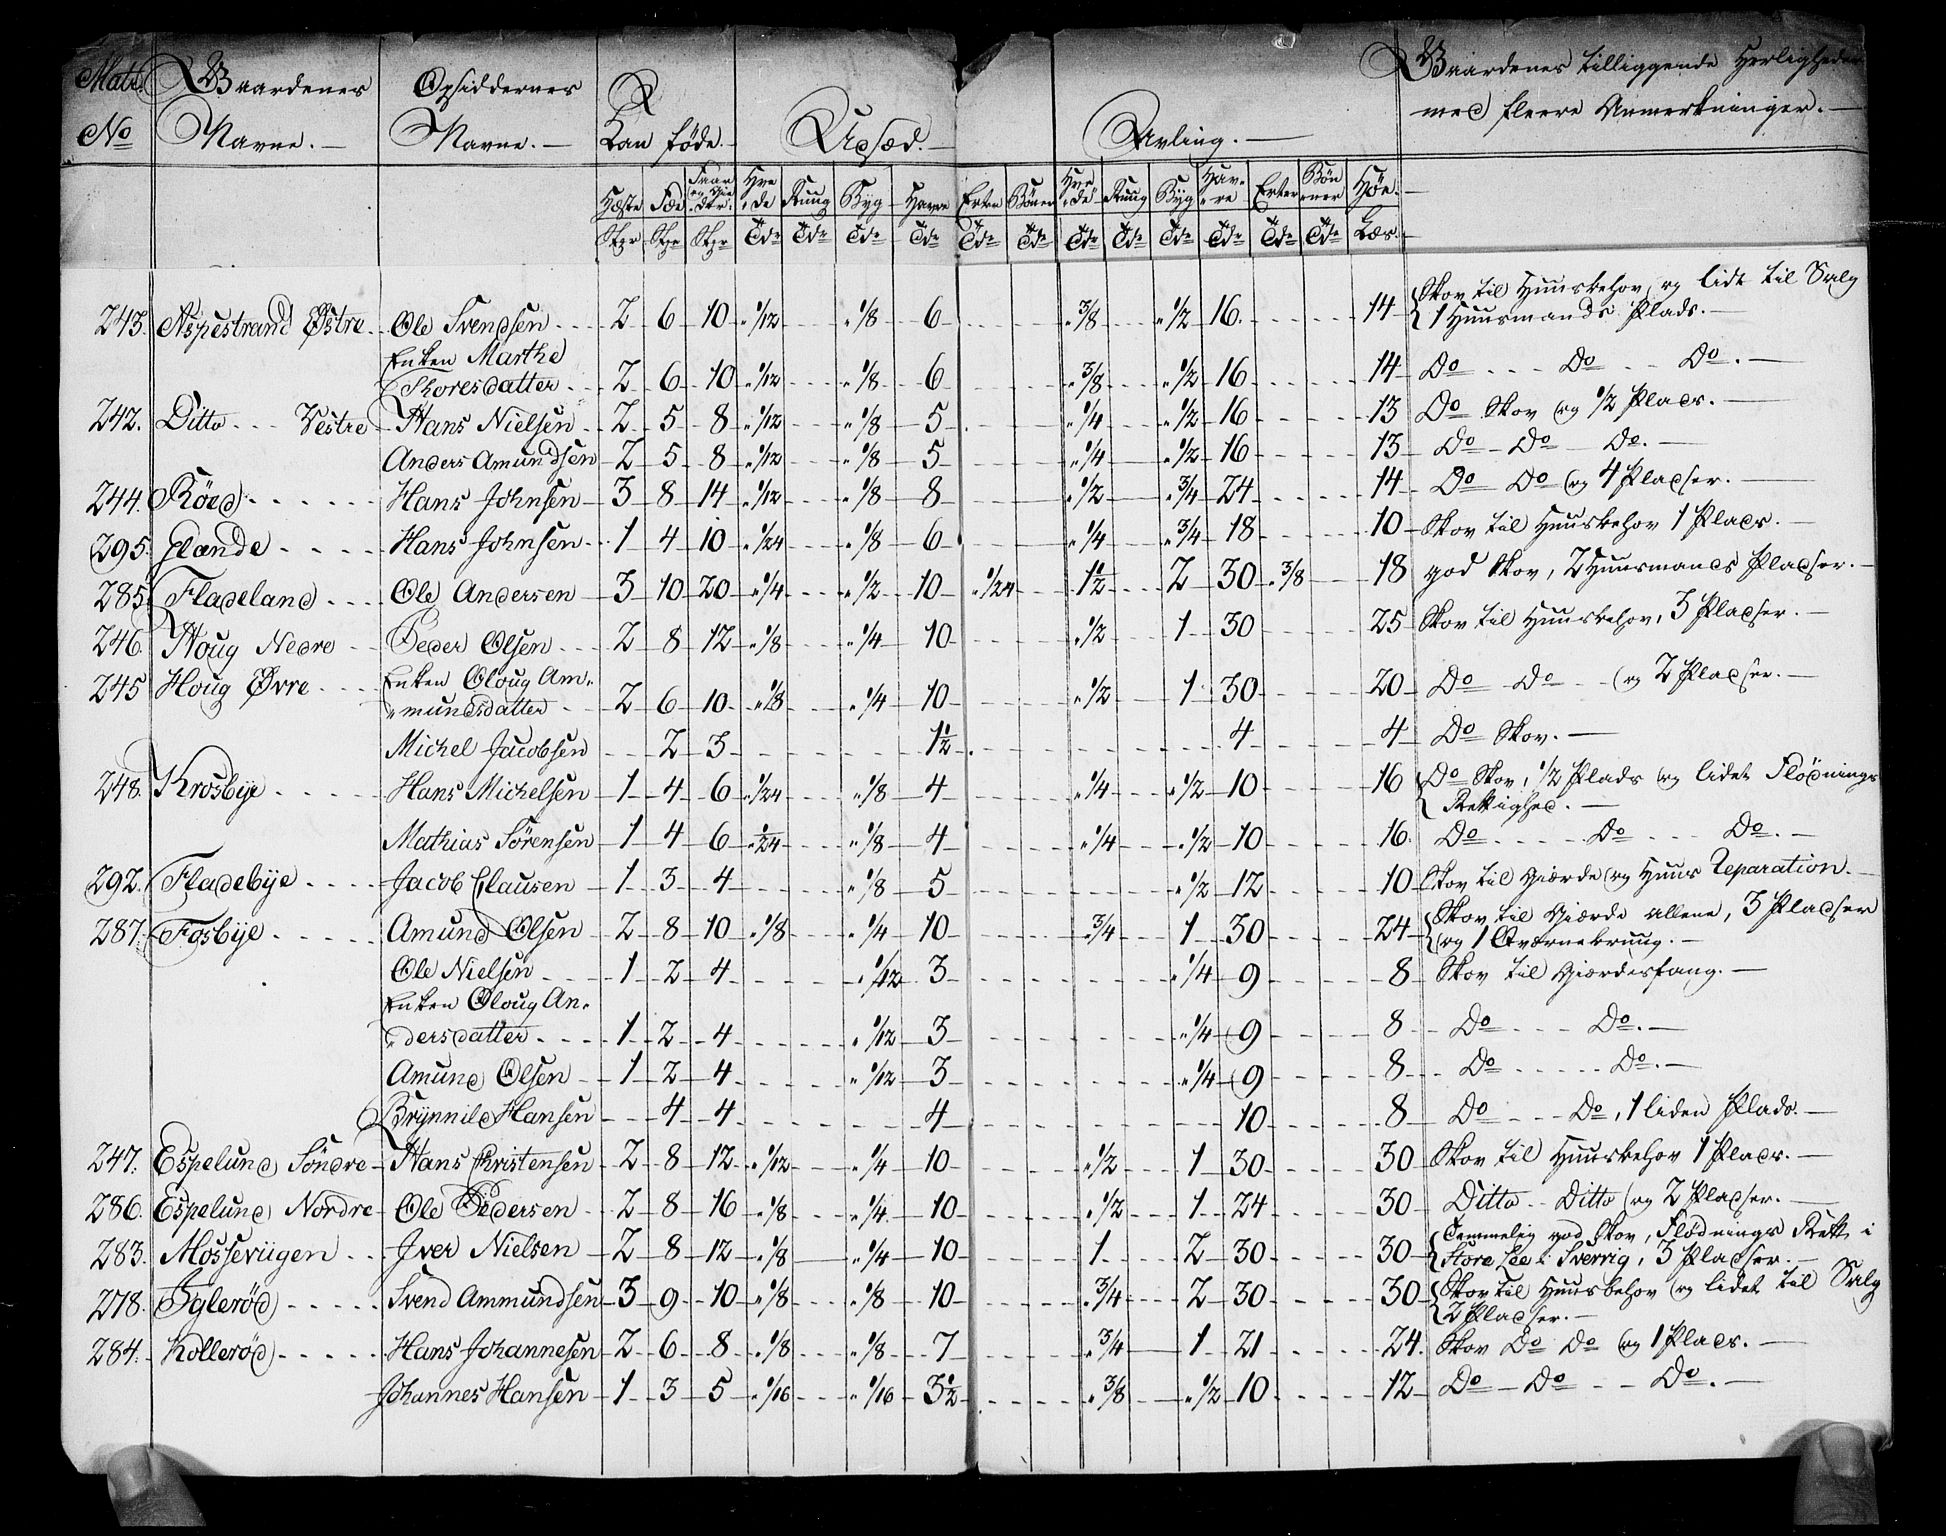 Matr. Gaardenes Opsiddernes Kan føde. Udsæd. Avling. Gaardenes tilliggende Herligheder
No Navne. Navne. med fleere Anmerkninger.
Hæste Fæe Faar Hve de Ruug Byg Havre Erter Bøner Hve de Ruug Byg Hav re Erter Bøn ner Høe
Tdr Tdr Tdr Tdr Tdr Tdr Tdr Tdr Tdr Tdr Tdr Tdr Læs
243. Aspestrand Østre Ole Svendsen 2 6 10 1/12 1/8 6 3/8 1/2 16 14 Skov til Huusbehov, og lidt til Salg
1 Huusmands Plads.
Enken Marthe
Thoresdatter 2 6 10 1/12 1/8 6 3/8 1/2 16 14 Do Do Do.
242. Ditto Vestre Hans Nielsen 2 5 8 1/12 1/8 5 1/4 1/2 16 13 Do Skov og 1/2 Plads.
Anders Amundsen 2 5 8 1/12 1/8 5 1/4 1/2 16 13 Do Do Do.
244. Röed Hans Johnsen 3 8 14 1/12 1/8 8 1/2 3/4 24 14 Do Do og 4 Pladser.
295. Elende Hans Johnsen 1 4 10 1/24 1/8 6 1/4 3/4 18 10 Skov til Huusbehov 1 Plads.
285. Fladeland Ole Andersen 3 10 20 1/4 1/2 10 1/24 1 1/2 2 30 3/8 18 god Skov, 2 Huusmands Pladser.
246. Houg Nedre Peder Olsen 2 8 12 1/8 1/4 10 1/2 1 30 25 Skov til Huusbehov, 3 Pladser.
245 Houg Øvre Enken Oloug Am
mundsdatter 2 6 10 1/8 1/4 10 1/2 1 30 20 Do Do og 2 Pladser.
Michel Jacobsen 2 3 1 1/2 4 4 Do Skov.
248. Krosbye Hans Michelsen 1 4 6 1/24 1/8 4 1/4 1/2 10 16 Do Skov, 1/2 Plads og lidet Flödnings
Rettighed.
Mathias Sörensen 1 4 6 1/24 1/8 4 1/4 1/2 10 16 Do Do Do.
292. Fladebye Jacob Clausen 1 3 4 1/8 5 1/2 12 10 Skov til Giærde og Huus Reparation.
287. Fosbye Amund Olsen 2 8 10 1/8 1/4 10 3/4 1 30 24 Skov til Giærde allene, 3 Pladser
og 1 Qværnebruug.
Ole Nielsen 1 2 4 1/12 3 1/4 9 8 Skov til Giærdesfang.
Enken Oloug An
dersdatter 1 2 4 1/12 3 1/4 9 8 Do Do.
Amund Olsen 1 2 4 1/12 3 1/4 9 8 Do Do.
Brynnild Hansen 4 4 4 10 8 Do Do, 1 liden Plads.
247. Espelund Söndre Hans Christensen 2 8 12 1/12 1/4 10 1/2 1 30 30 Skov til Huusbehov 1 Plads.
286. Espelund Nordre Ole Pedersen 2 8 16 1/8 1/4 10 1/2 1 24 30 Ditto Ditto og 2 Pladser.
283. Mosseviigen Iver Nielsen 2 8 12 1/8 1/4 10 1 2 30 30 Temmelig god Skov, Flödnings Rett i
Store Lee i Sverrig, 3 Pladser.
278. Iglerød Svend Ammundsen 3 9 10 1/8 1/8 10 3/4 2 30 30 Skov til Huusbehov og lidet til Salg
2 Pladser.
284. Kollerød Hans Johannesen 2 6 8 1/8 1/8 7 3/4 1 21 24. Skov Do Do og 1 Plads.
Johannes Hansen 1 3 5 1/16 1/16 3 1/2 3/8 1/2 10 12 Do Do Do.